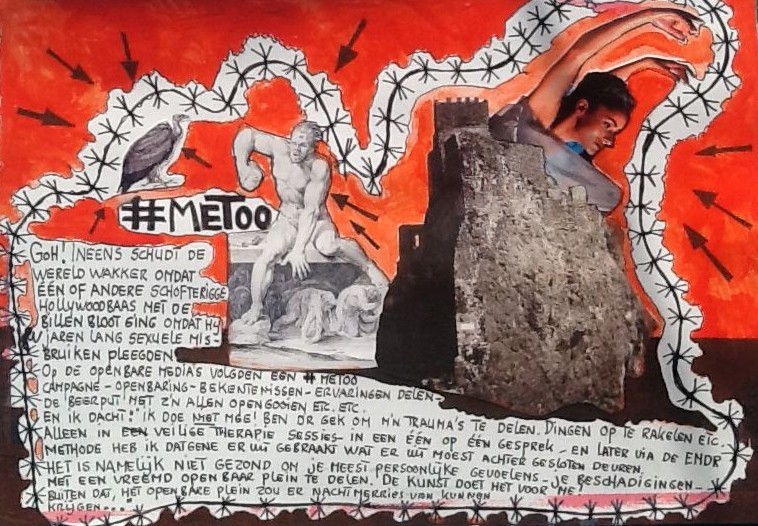 #METOO
GOH! INEENS SCHUDT DE
WERELD WAKKER OMDAT
ÉÉN OF ANDERE SCHOFTERIGGE
HOLLYWOODBAAS MET DE
BILLEN BLOOT GING OMDAT HY
JAREN LANG SEXUELE MIS-
BRUIKEN PLEEGDEN
OP DE OPENBARE MEDIA'S VOLGDEN EEN #METOO
CAMPAGNE-OPENBARING-BEKENTENISSEN-ERVARINGEN DELEN-
DE 'BEERPUT' MET Z'N ALLEN OPENGOOIEN ETC. ETC.
EN IK DACHT: "IK DOE NIET MEE! BEN OR GEK OM M'N TRAUMA'S TE DELEN. DINGEN OP TE RAKELEN ETC.
ALLEEN IN EEN VEILIGE THERAPIE SESSIES- IN EEN ÉÉN OP ÉÉN GESPREK- EN LATER VIA DE EMDR
METHODE HEB IK DATGENE ER UIT GEBRAAKT WAT ER UIT MOEST ACHTER GESLOTEN DEUREN.
HET IS NAMELIJK NIET GEZOND OM JE MEEST PERSOONLIJKE GEVOELENS- JE BESCHADIGINGEN-
MET EEN VREEMD OPENBAAR PLEIN TE DELEN. DE KUNST DOET HET VOOR ME!
BUITEN DAT, HET OPENBARE PLEIN ZOU ER NACHTMERRIES VAN KUNNEN
KRIJGEN..."